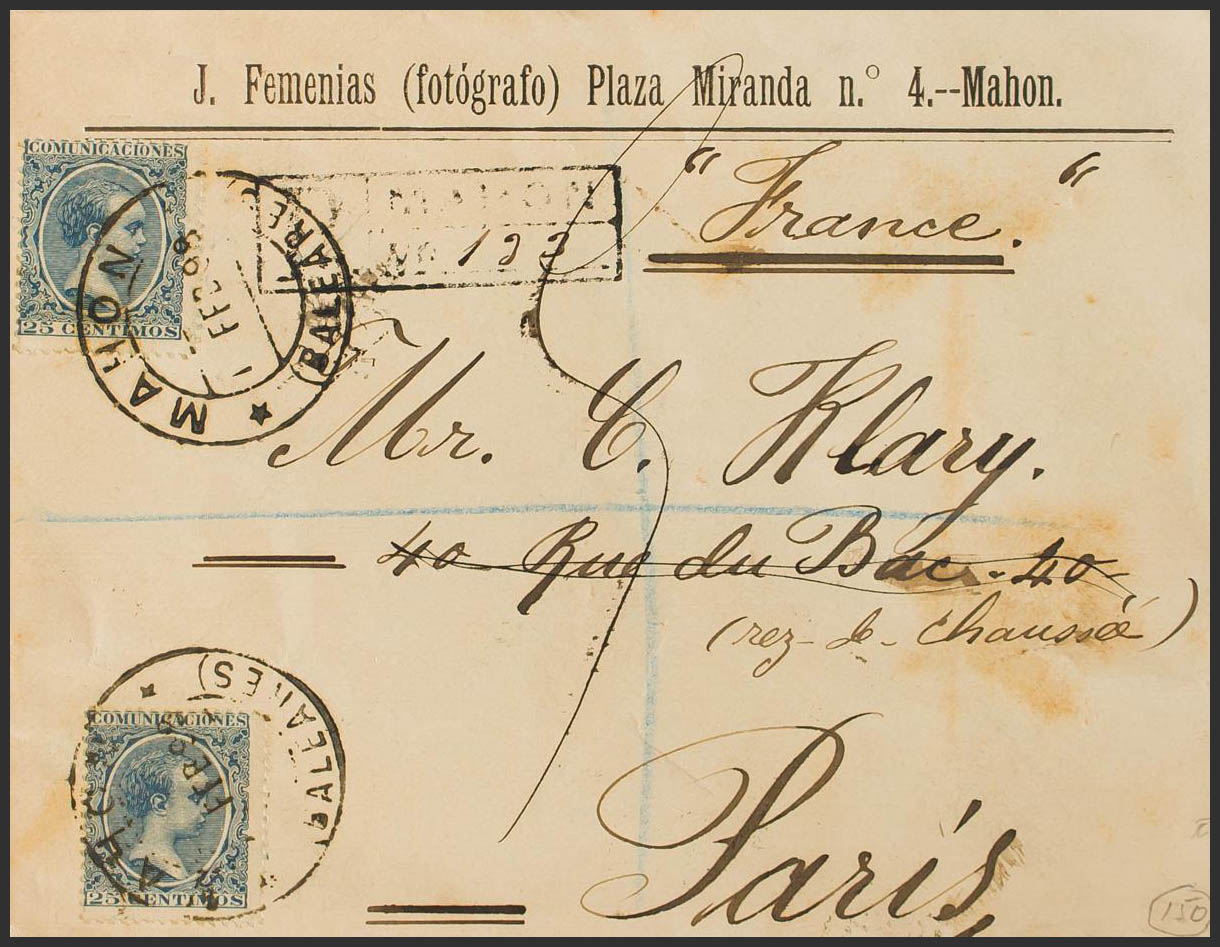 J. Femenias (fotógrafo) Plaza Miranda n.° 4.--Mahon.
COMUNICACIONES
25 CENTIMOS
MAHON
(BALEARES)
FEB 98
MAHON
193
“France.“
Mr. C. Klary.
40 Rue du Bac. 40,
(rez-de-chaussée)
Paris
COMUNICACIONES
25 CENTIMOS
MAHON
(BALEARES)
150